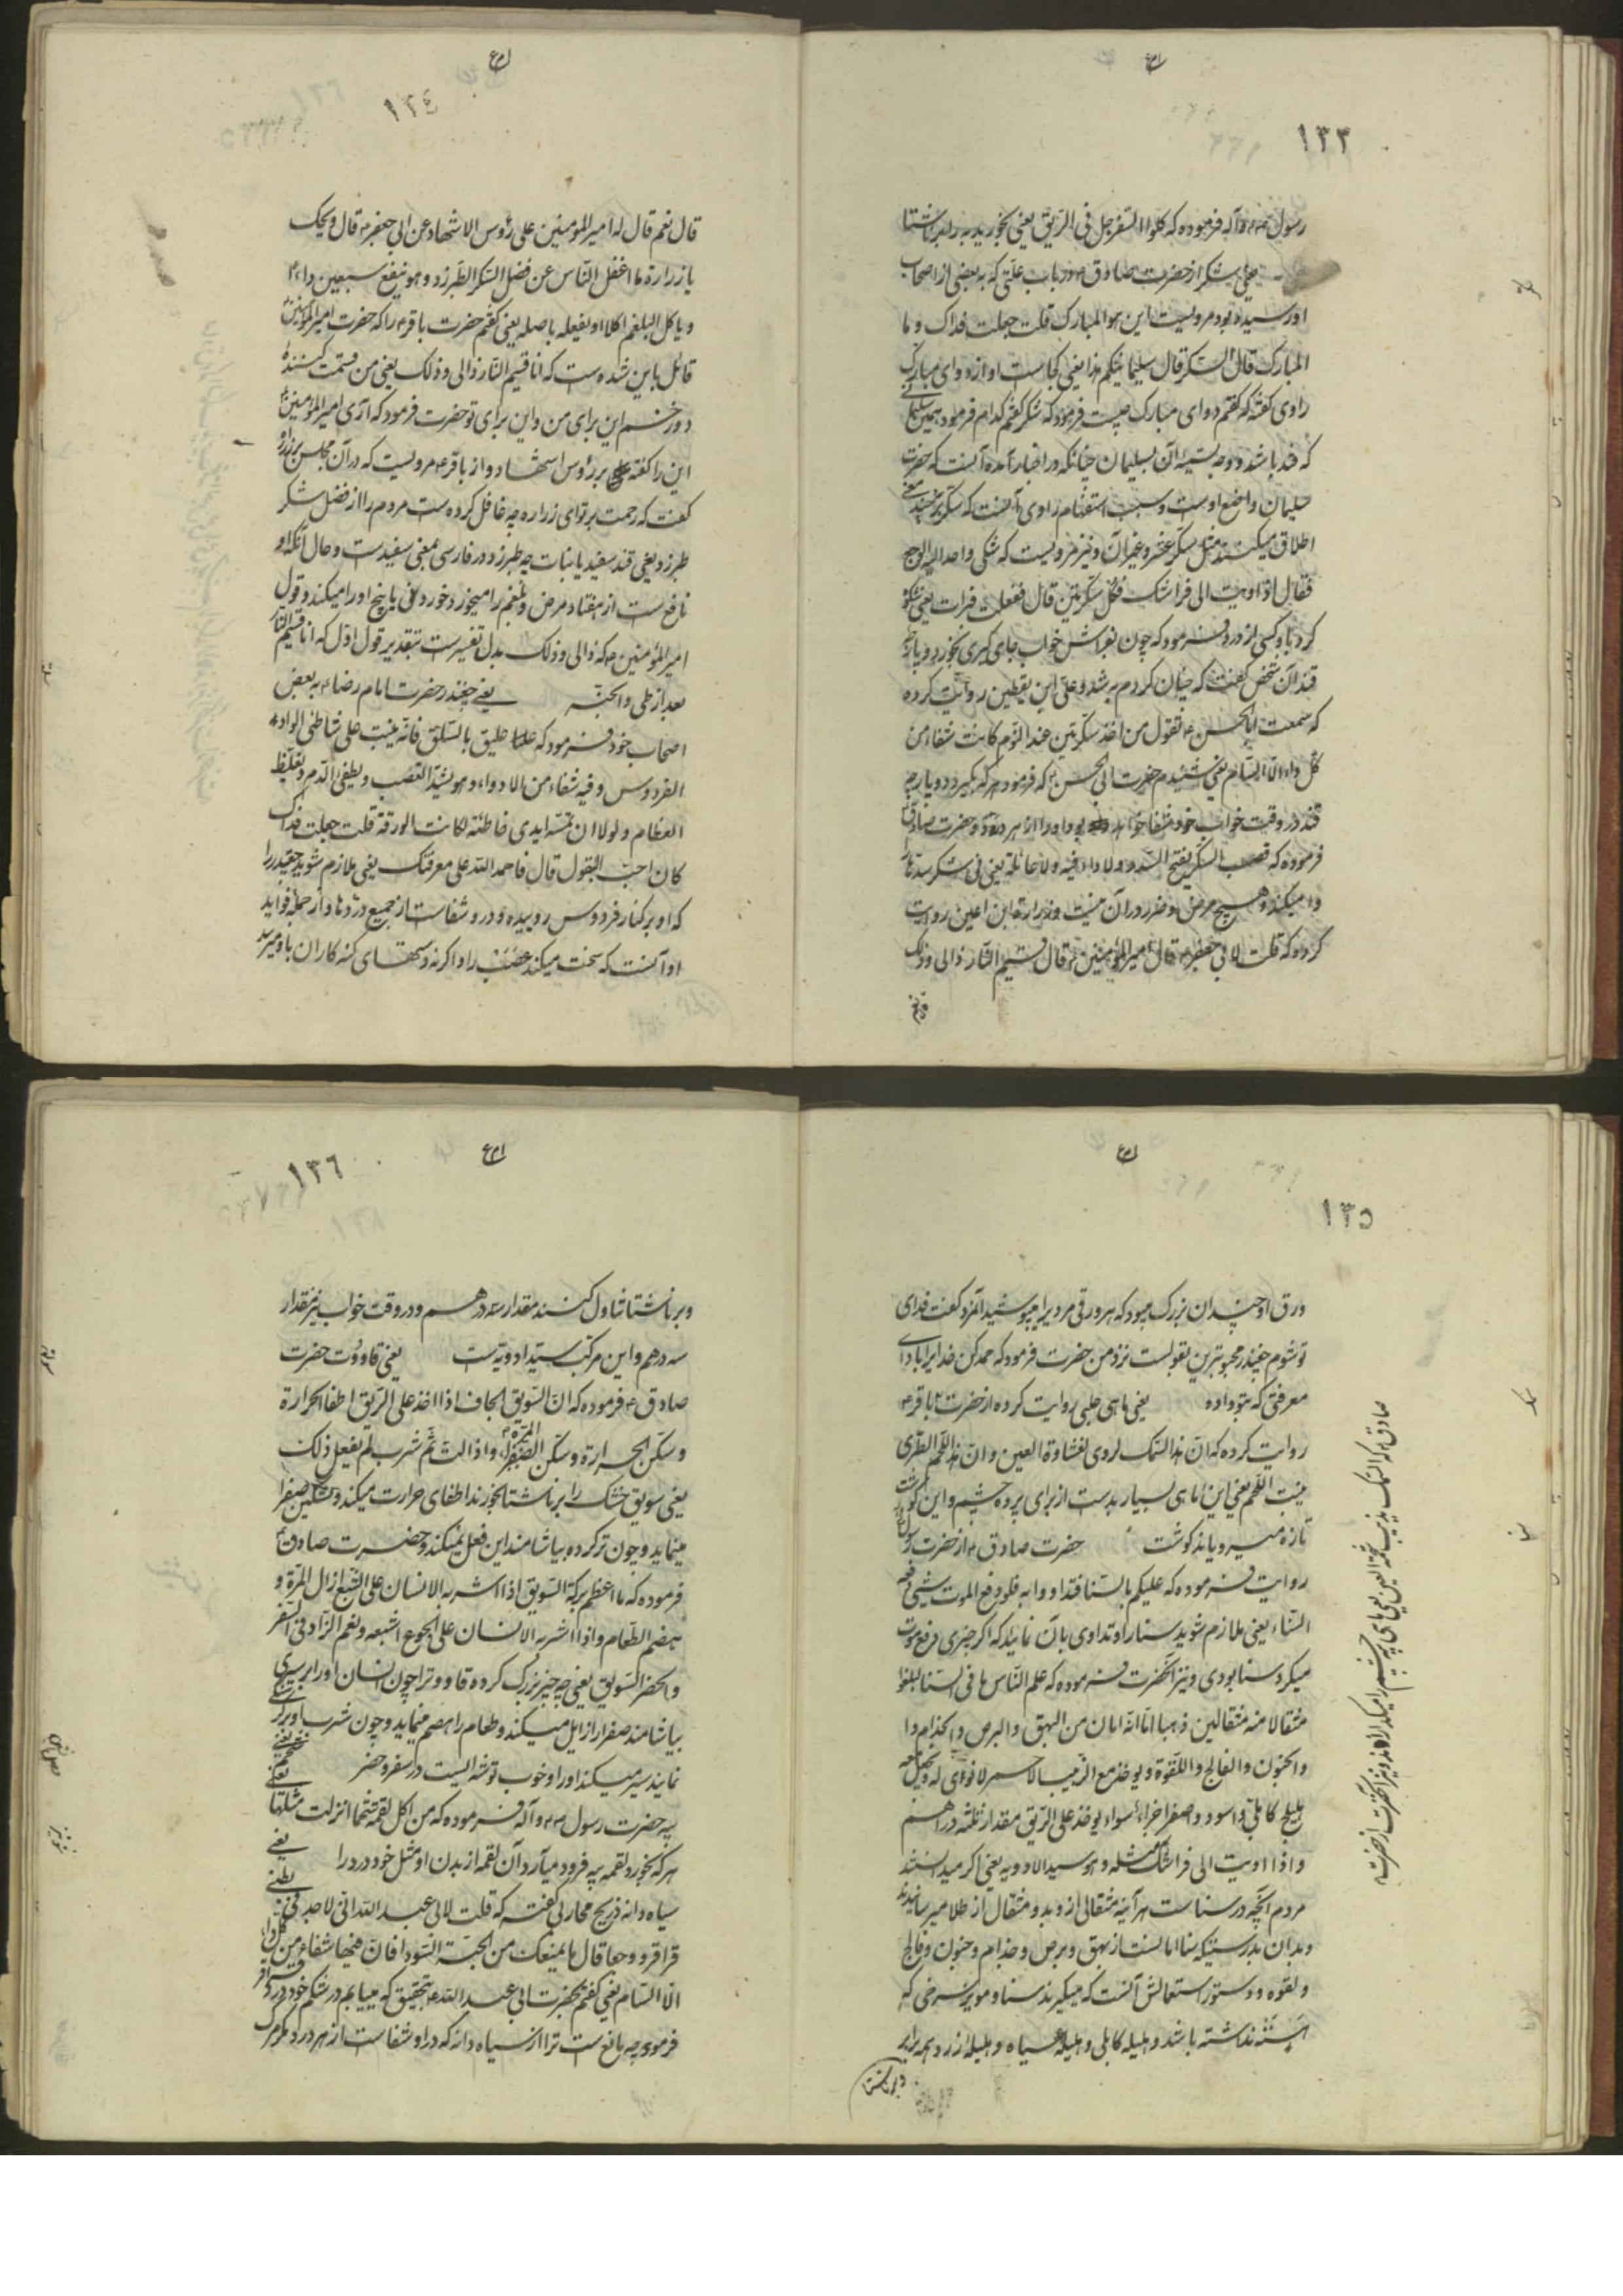 ١٣٣
رسول ص و آله فرموده که کلوا السفرجل فی الریق یعنی بخورید به را بر ناشتا
یعنی شکر از حضرت صادق ع در باب علتی که به بعضی از اصحاب
او رسیده بود مرویست این هو المبارک قلت جعلت فداک و ما
المبارک قال السکر قال سلیمانیکم هذا یعنی کجاست او از دوای مبارک
راوی گفته که گفتم دوای مبارک چیست فرمود که شکر گفتم کدام فرمود همین سلیمانی
که قند باشد و وجه تسمیه آن بسلیمان چنانکه در اخبار آمده آنست که حضرت
سلیمان واضع اوست و سبب استفهام راوی آنست که سکر بر چند معنی
اطلاق میکنند مثل سکر عشر و غیر آن و نیز مرویست که شکی واحد الیه الوجع
فقال اذا اویت الی فراشک فکل سکرتین قال ففعلت فبرات یعنی شکوه
کرد باو کسی از درد فرمود که چون بفراش خواب جای گیری بخور دو پارچه
قند آن شخص گفت که چنان کردم به شد و علی ابن یقطین روایت کرده
که سمعت ابا الحسن ع یقول من اخذ سکرتین عند النوم کانت شفاء من
کل داء الا السام یعنی شنیدم حضرت ابی الحسن ع که فرمود هر که بگیرد دو پارچه
قند در وقت خواب خود شفا خواهد بود او را از هر درد و حضرت صادق ع
فرموده که قصب السکر یفتح السدد ولا داء فیه ولا غائلة یعنی نی شکر سدها را
وا میکند و هیچ مرض و ضرر در آن نیست و زرارة ابن اعین روایت
کرده که قلت لابی جعفر ع قال امیر المؤمنین ع قال قسیم النار ذا لی و ذلک
قال نعم
١٣٤
قال نعم قال له امیر المؤمنین علی رؤس الاشهاد عن ابی جعفر ع قال ویحک
یا زرارة ما اغفل الناس عن فضل السکر الطبرزد و هو ینفع سبعین داء
و یاکل البلغم اکلا و یقلعه باصله یعنی گفتم حضرت باقر ع را که حضرت امیر المؤمنین
قائل باین شده است که انا قسیم النار ذا لی و ذلک یعنی من قسمت کننده
دوزخم این برای من و این برای تو حضرت فرمود که آری امیر المؤمنین ع
این را گفته بر رؤس اشهاد و از باقر ع مرویست که در آن مجلس بزراره
گفت که رحمت بر تو ای زراره چه غافل کرده است مردم را از فضل شکر
طبرزد یعنی قند سفید یا نبات چه طبرزد در فارسی بمعنی سفیدست و حال آنکه او
نافع است از هفتاد مرض و بلغم را میخورد خوردنی یا بیخ او را میکند و قول
امیر المؤمنین ع که ذا لی و ذلک بدل تفسیرست بتقدیر قول اول که انا قسیم النار
بعد از طی و الجنة یعنی چغندر حضرت امام رضا ع به بعض
اصحاب خود فرمود که علیک بالسلق فانه ینبت علی شاطئ الواد
الفردوس و فیه شفاء من الادواء و هو یشد العصب و یطفئ الدم و یغلیظ
العظام و لولا ان تمسه ایدی خاطئة لکانت الورقة قلت جعلت فداک
کان احب البقول قال فاحمد الله علی معرفتک یعنی ملازم شوید چغندر را
که او بر کنار فردوس روییده و درو شفاست از جمیع دردها و از جمله فواید
او آنست که سخت میکند عصب را و اگر نه دستهای گنه کاران باو میرسد
١٣٥
ورق او چندان بزرگ میبود که هر ورقی مردی را میپوشید آنمرد گفت فدای
تو شوم چغندر محبوبترین بقولست نزد من حضرت فرمود که حمد کن خدا را با دای
معرفتی که بتو داده یعنی ماهی حلبی روایت کرده از حضرت باقر ع
روایت کرده که ان هذا السمک لردی لغشاوة العین و ان هذا اللحم الطری
ینبت اللحم یعنی این ماهی بسیار بدست از برای پرده چشم و این گوشت
تازه میرویاند گوشت حضرت صادق ع از حضرت رسول
روایت فرموده که علیکم بالسنا فتداووا به فلو دفع الموت شیئ دفعه
السناء یعنی ملازم شوید سنا را و تداوی بآن نمائید که اگر چیزی دفع موت
میکرد سنا بودی و نیز آنحضرت فرموده که علم الناس ما فی السنا لبلغوا
مثقالا منه مثقالین ذهبا اما انه امان من البهق و البرص و الجذام
و الجنون و الفالج و اللقوة و یؤخذ مع الزبیب الاحمر لا نوی له و یجعل معه
هلیلج کابلی و اسود و اصفر اجزاء سواء یؤخذ علی الریق مقدار ثلثة دراهم
و اذا اویت الی فراشک مثله و هو سید الادویه یعنی اگر میدانستند
مردم آنچه در سناست هر آینه مثقالی از و بدو مثقال از طلا میرسانیدند
و بدان بدرستیکه سنا امانست از بهق و برص و جذام و جنون و فالج
و لقوه و دستور استعمالش آنست که میگیرند سنا و مویز سرخی که
هسته نداشته باشد و هلیله کابلی و هلیله سیاه و هلیله زرد همه برابر
و بر ناشتا
١٣٦
و بر ناشتا تناول کنند مقدار سه درهم و در وقت خواب نیز مقدار
سه درهم و این مرکب سید ادویه است یعنی قاووت حضرت
صادق ع فرموده که ان السویق الجاف اذا اخذ علی الریق اطفا الحرارة
و سکن الحرارة و سکن المرة الصفرا و اذا لت ثم شرب لم یفعل ذلک
یعنی سویق خشک را بر ناشتا بخورند اطفای حرارت میکند و تسکین صفرا
مینماید و چون تر کرده بیاشامند این فعل نمیکند و حضرت صادق ع
فرموده که ما اعظم برکة السویق اذا اشربه الانسان علی الشبع ازال المرة و
هضم الطعام و اذا اشربه الانسان علی الجوع اشبعه و نعم الزاد فی السفر
و الحضر السویق یعنی چه چیز بزرگ کرده قاووت را چون انسان او را بر سیری
بیاشامند صفرا را زایل میکند و طعام را هضم مینماید و چون شرب او بر گرسنگی
نمایند سیر میکند او را و خوب توشه ایست در سفر و حضر یعنی
پیه حضرت رسول ص و آله فرموده که من اکل لقمة شحما انزلت مثلها
هر که بخورد لقمه پیه فرود میآرد آن لقمه از بدن او مثل خود درد را یعنی
سیاه دانه ذریح محاربی گفته که قلت لابی عبد الله انی لاجد فی بطنی
قراقر و وجعا قال ما یمنعک من الحبة السودا فان فیها شفاء من کل داء
الا السام یعنی گفتم بحضرت ابی عبد الله ع بتحقیق که مییابم در شکم خود درد و قراقر
فرمود چه مانع است ترا از سیاه دانه که در او شفاست از هر درد مگر مرگ